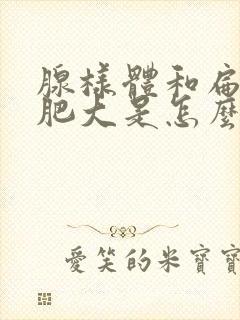 腺樣體和扁
肥大是怎麼
愛笑的米寶寶